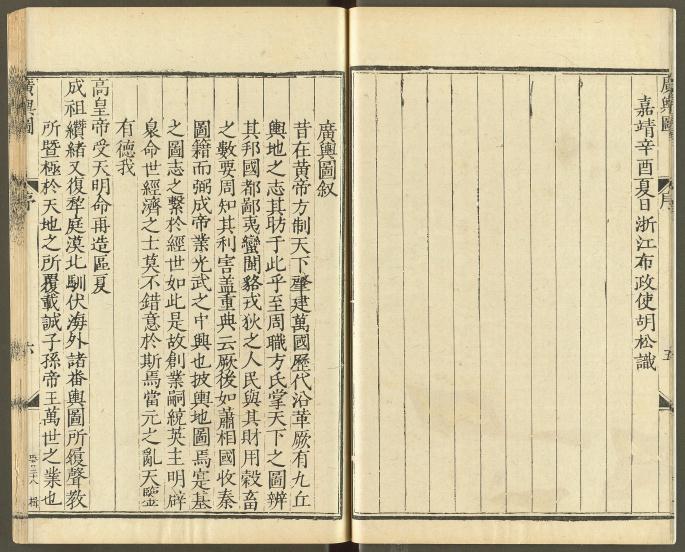 嘉靖辛酉夏日浙江布政使胡松識
廣輿圖
序
五
廣輿圖叙
昔在黃帝方制天下肇建萬國歷代沿革厥有九丘
輿地之志其昉于此乎至周職方氏掌天下之圖辨
其邦國都鄙夷蠻閩貉戎狄之人民與其財用穀畜
之數要周知其利害盖重典云厥後如蕭相國收秦
圖籍而弼成帝業光武之中興也披輿地圖焉寔基
之圖志之繫於經世如此是故創業嗣統英主明辟
泉命世經濟之士莫不錯意於斯焉當元之亂天鑒
有德我
高皇帝受天明命再造區夏
成祖纘緒又復犂庭漠北馴伏海外諸番輿圖所履聲教
所暨極於天地之所覆載誠子孫帝王萬世之業也
廣輿圖
序
六